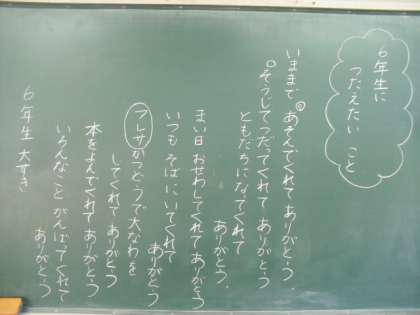 6年生に
つたえたい こと
いままで あそんでくれて ありがとう.
そうじてつだってくれて ありがとう
ともだちになてくれて
ありがとう.
まい日 おせわしてくれて ありがとう
いつも そばにいてくれて
ありがとう
フレサかつどうで大なわを
してくれて ありがとう
本をよんでくれて ありがとう
いろんなこと がんばってくれて
ありがとう
6年生 大すき